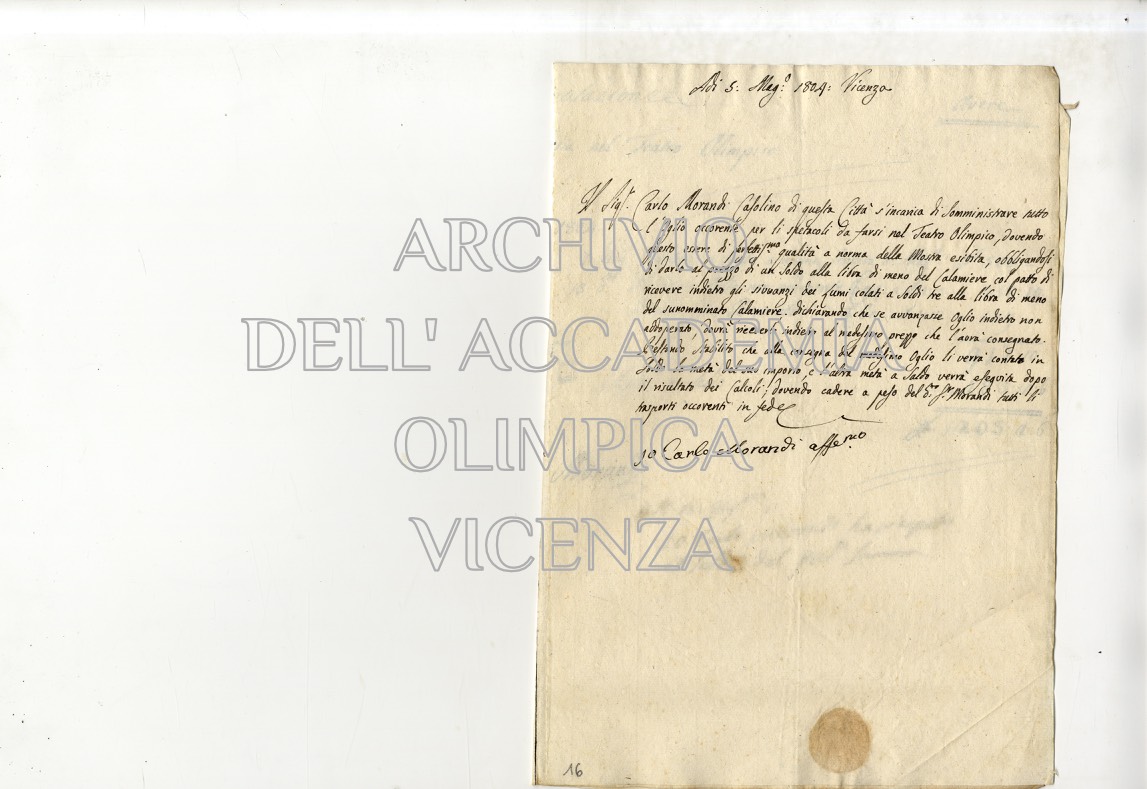 Adi 5: Mag.º 1824: Vicenza
Il Sig.r Carlo Morandi Casolino di questa Città s'incarica di Somministrare tutto
l'Oglio occorente per li spetacoli da farsi nel Teatro Olimpico, dovendo
questo essere di perfettissmo qualità a norma della Mostra esibita, obbligandosi
di darlo al prezzo di un Soldo alla libra di meno del Calamiere col patto di
ricevere indietro gli sivvanzi dei fumi colati a Soldi tre alla libra di meno
del sunomminato Calamiere. dichiarando che se avvanzasse Oglio indietro non
addoperato dovrà riceverlo indietro al medesimo prezzo che l'avrà consegnato.
Restando Stabilito che alla consegna del medesimo Oglio li verrà contato in
Soldo la metà del suo importo e l'altra metà a Saldo verrà eseguita dopo
il risultato dei Calcoli; dovendo cadere a peso del d.to S.r Morandi tutti li
trasporti occorenti in fede
Io Carlo Morandi affermo
16
ARCHIVIO
DELL' ACCADEMIA
OLIMPICA
VICENZA